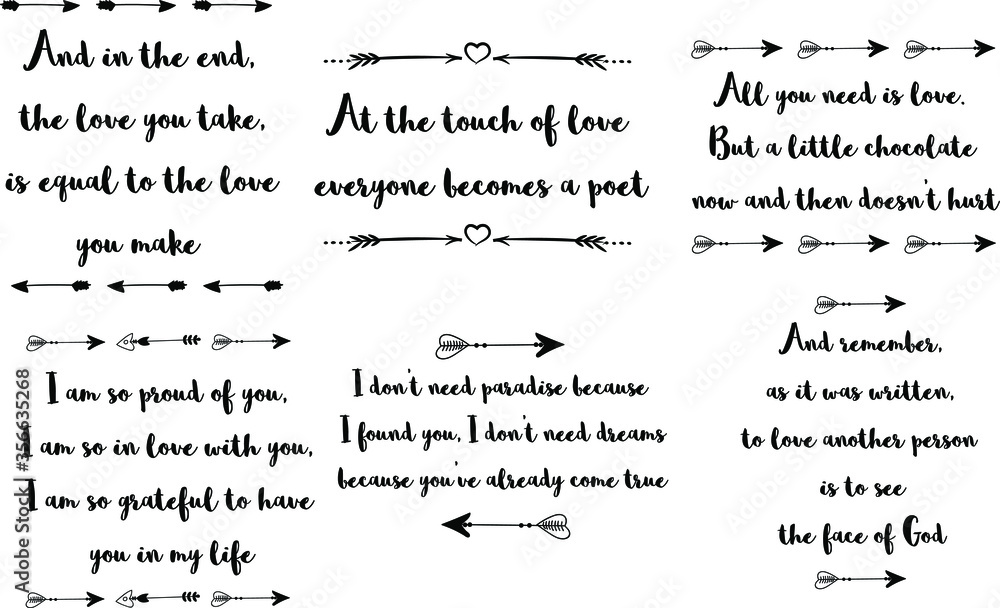 And in the end,
the love you take,
is equal to the love
you make
At the touch of love
everyone becomes a poet
All you need is love.
But a little chocolate
now and then doesn't hurt
I am so proud of you,
I am so in love with you,
I am so grateful to have
you in my life
I don't need paradise because
I found you, I don't need dreams
because you've already come true
And remember,
as it was written,
to love another person
is to see
the face of God
Adobe Stock | #356635268